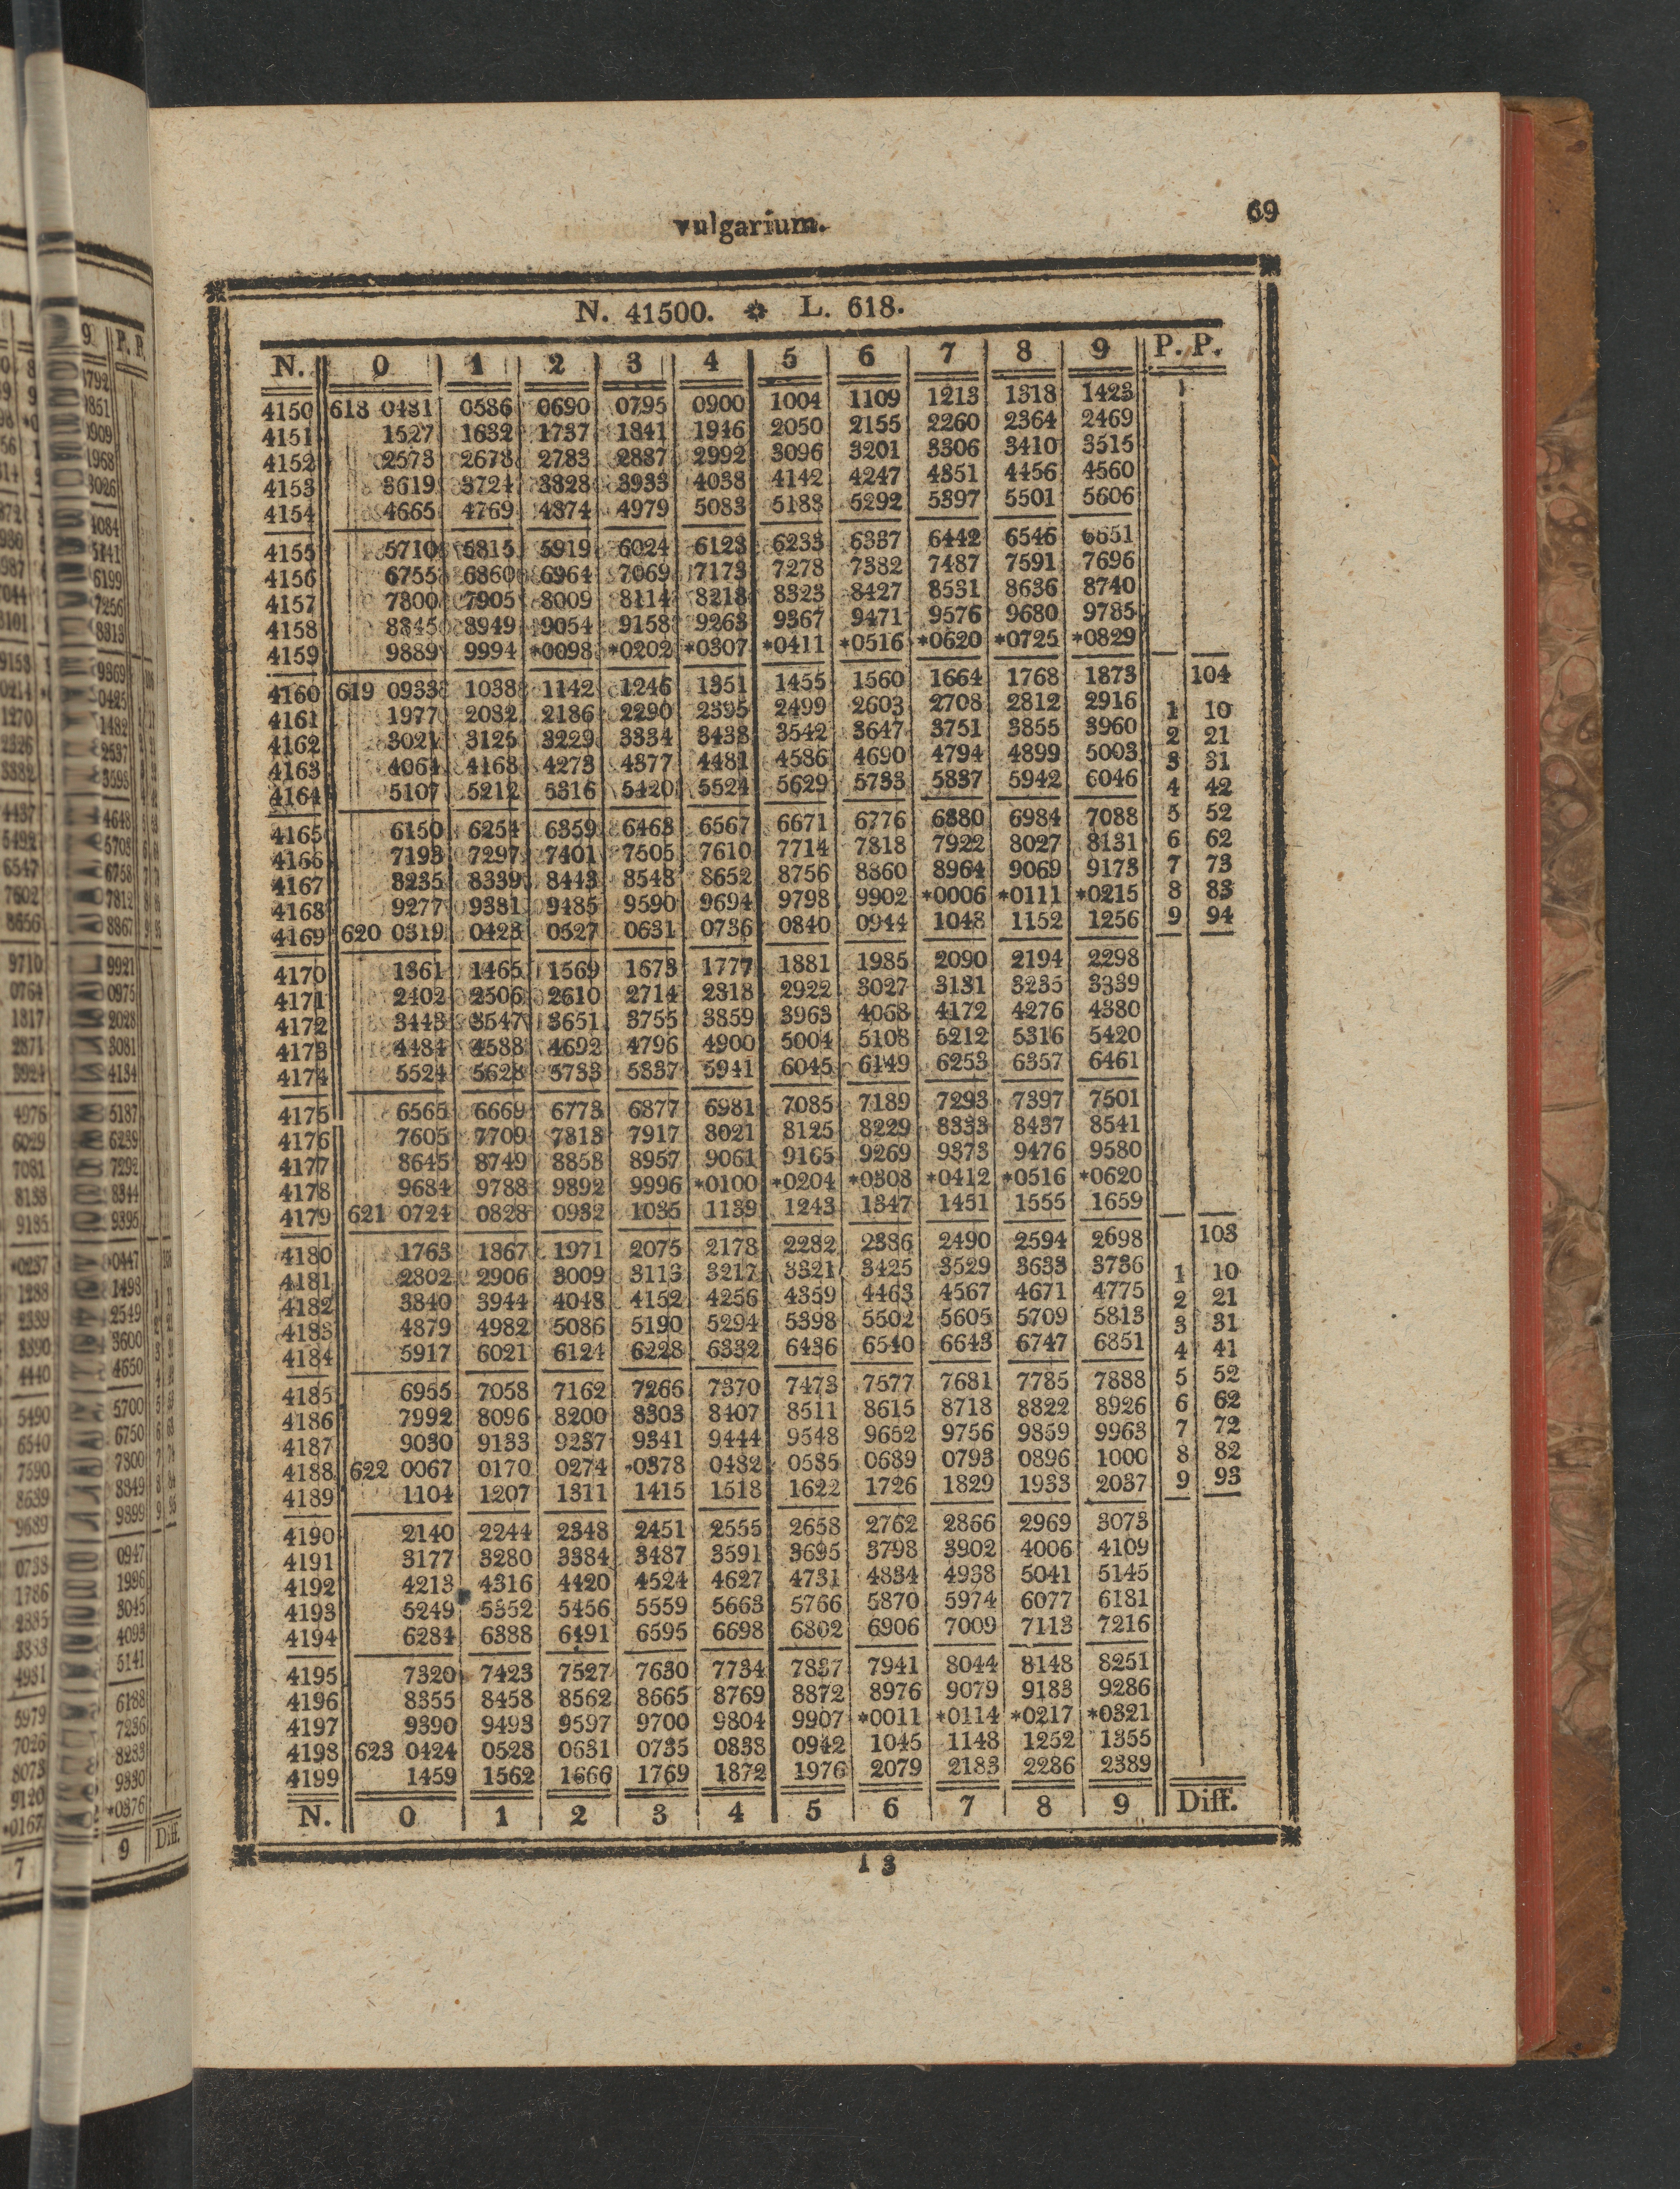 vulgarium. 69
N. 41500. ✲ L. 618.
N. 0 1 2 3 4 5 6 7 8 9 P. P.
4150 618 0481 0586 0690 0795 0900 1004 1109 1213 1318 1423
4151 1527 1632 1737 1841 1946 2050 2155 2260 2364 2469
4152 2573 2678 2783 2887 2992 3096 3201 3306 3410 3515
4153 3619 3724 3828 3933 4038 4142 4247 4351 4456 4560
4154 4665 4769 4874 4979 5083 5188 5292 5397 5501 5606
4155 5710 5815 5919 6024 6128 6233 6337 6442 6546 6651
4156 6755 6860 6964 7069 7173 7278 7382 7487 7591 7696
4157 7800 7905 8009 8114 8218 8323 8427 8531 8636 8740
4158 8845 8949 9054 9158 9263 9367 9471 9576 9680 9785
4159 9889 9994 *0098 *0202 *0307 *0411 *0516 *0620 *0725 *0829
4160 619 0933 1038 1142 1246 1351 1455 1560 1664 1768 1873 104
4161 1977 2082 2186 2290 2395 2499 2603 2708 2812 2916 1 10
4162 3021 3125 3229 3334 3438 3542 3647 3751 3855 3960 2 21
4163 4064 4168 4273 4377 4481 4586 4690 4794 4899 5003 3 31
4164 5107 5212 5316 5420 5524 5629 5733 5837 5942 6046 4 42
4165 6150 6254 6359 6463 6567 6671 6776 6880 6984 7088 5 52
4166 7193 7297 7401 7505 7610 7714 7818 7922 8027 8131 6 62
4167 8235 8339 8443 8548 8652 8756 8860 8964 9069 9173 7 73
4168 9277 9381 9485 9590 9694 9798 9902 *0006 *0111 *0215 8 83
4169 620 0319 0423 0527 0631 0736 0840 0944 1048 1152 1256 9 94
4170 1361 1465 1569 1673 1777 1881 1985 2090 2194 2298
4171 2402 2506 2610 2714 2818 2922 3027 3131 3235 3339
4172 3443 3547 3651 3755 3859 3963 4068 4172 4276 4380
4173 4484 4588 4692 4796 4900 5004 5108 5212 5316 5420
4174 5524 5628 5733 5837 5941 6045 6149 6253 6357 6461
4175 6565 6669 6773 6877 6981 7085 7189 7293 7397 7501
4176 7605 7709 7813 7917 8021 8125 8229 8333 8437 8541
4177 8645 8749 8853 8957 9061 9165 9269 9373 9476 9580
4178 9684 9788 9892 9996 *0100 *0204 *0308 *0412 *0516 *0620
4179 621 0724 0828 0932 1035 1139 1243 1347 1451 1555 1659
4180 1763 1867 1971 2075 2178 2282 2386 2490 2594 2698 103
4181 2802 2906 3009 3113 3217 3321 3425 3529 3633 3736 1 10
4182 3840 3944 4048 4152 4256 4359 4463 4567 4671 4775 2 21
4183 4879 4982 5086 5190 5294 5398 5502 5605 5709 5813 3 31
4184 5917 6021 6124 6228 6332 6436 6540 6643 6747 6851 4 41
4185 6955 7058 7162 7266 7370 7473 7577 7681 7785 7888 5 52
4186 7992 8096 8200 8303 8407 8511 8615 8718 8822 8926 6 62
4187 9030 9133 9237 9341 9444 9548 9652 9756 9859 9963 7 72
4188 622 0067 0170 0274 0378 0482 0585 0689 0793 0896 1000 8 82
4189 1104 1207 1311 1415 1518 1622 1726 1829 1933 2037 9 93
4190 2140 2244 2348 2451 2555 2658 2762 2866 2969 3073
4191 3177 3280 3384 3487 3591 3695 3798 3902 4006 4109
4192 4213 4316 4420 4524 4627 4731 4834 4938 5041 5145
4193 5249 5352 5456 5559 5663 5766 5870 5974 6077 6181
4194 6284 6388 6491 6595 6698 6802 6906 7009 7113 7216
4195 7320 7423 7527 7630 7734 7837 7941 8044 8148 8251
4196 8355 8458 8562 8665 8769 8872 8976 9079 9183 9286
4197 9390 9493 9597 9700 9804 9907 *0011 *0114 *0217 *0321
4198 623 0424 0528 0631 0735 0838 0942 1045 1148 1252 1355
4199 1459 1562 1666 1769 1872 1976 2079 2183 2286 2389
N. 0 1 2 3 4 5 6 7 8 9 Diff.
I 3